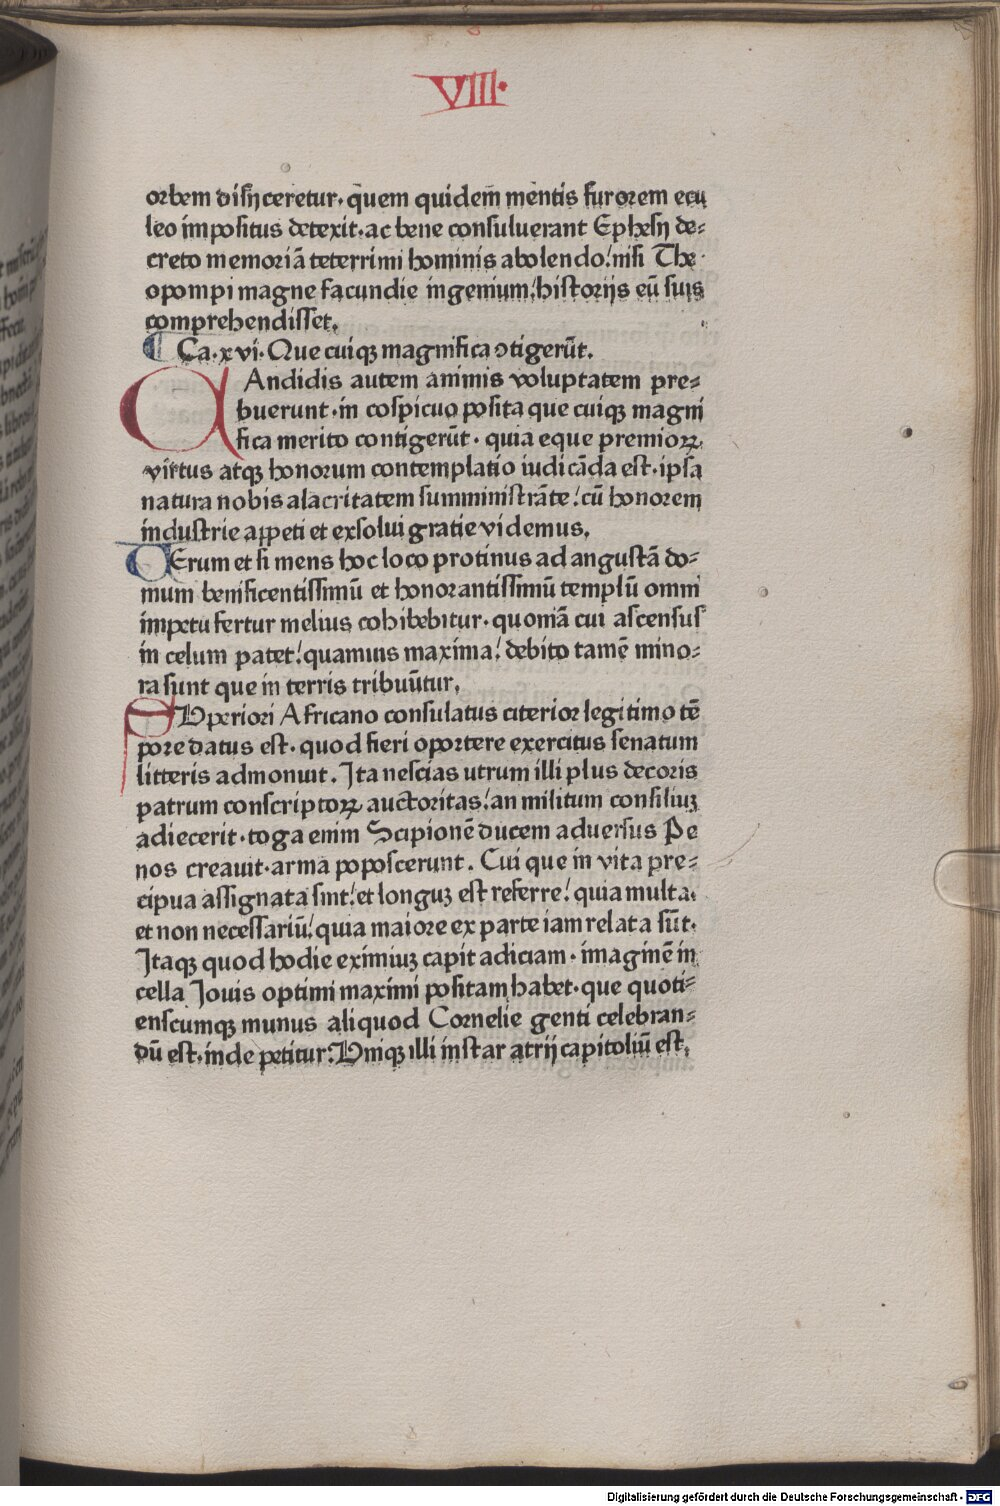 VIII·
orbem disijceretur· quem quidem̄ mentis furorem ecu
leo impositus detexit· ac bene consuluerant Ephesij de⸗
creto memoriā teterrimi hominis abolendo! nisi The
opompi magne facundie ingenium! historijs eū suis
comprehendisset.
¶ Ca. xvi. Que cuiqꝫ magnifica ↄtigerūt.
CAndidis autem animis voluptatem pre⸗
buerunt · in cōspicuo posita que cuiqꝫ magni
fica merito contigerūt · quia eque premioꝝ
virtus atqꝫ honorum contemplatio iudicāda est · ipsa
natura nobis alacritatem sumministrāte! cū honorem
industrie appeti et exsolui gratie videmus.
VErum et si mens hoc loco protinus ad angustā do⸗
mum benificentissimū et honorantissimū templū omni
impetu fertur melius cohibebitur · quoniā cui ascensus
in celum patet! quamuis maxima! debito tamē mino⸗
ra sunt que in terris tribuūtur.
SUperiori Africano consulatus citerior legitimo tē
pore datus est · quod fieri oportere exercitus senatum
litteris admonuit. Ita nescias utrum illi plus decoris
patrum conscriptoꝝ auctoritas! an militum consiliuꝫ
adiecerit · toga enim Scipionē ducem aduersus Pe
nos creauit · arma poposcerunt. Cui que in vita pre⸗
cipua assignata sint! et longuꝫ est referre! quia multa·
et non necessariū! quia maiore ex parte iam relata sūt·
Itaqꝫ quod hodie eximiuꝫ capit adiciam · imaginē in
cella Iouis optimi maximi positam habet · que quoti⸗
enscumqꝫ munus aliquod Cornelie genti celebran⸗
dū est · inde petitur. Uniqꝫ illi instar atrij capitoliū est.
Digitalisierung gefördert durch die Deutsche Forschungsgemeinschaft - DFG